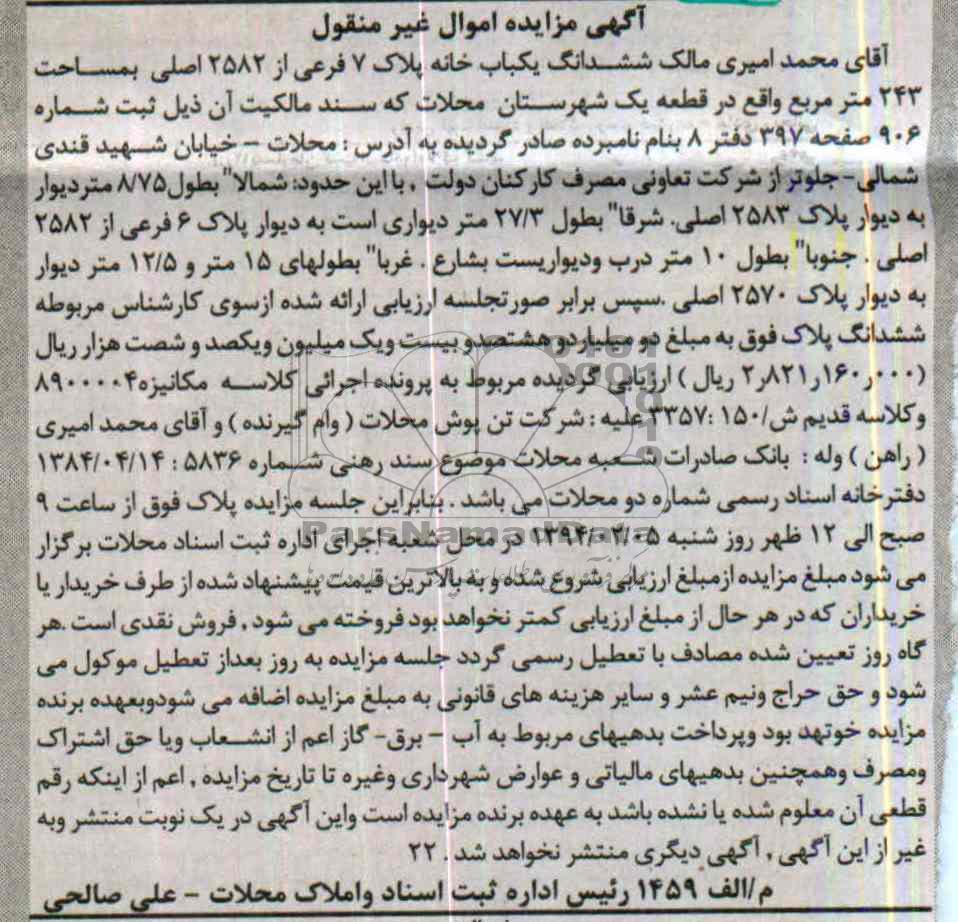 آگهی مزایده اموال غیر منقول
آقای محمد امیری مالک ششدانگ یکباب خانه پلاک ۷ فرعی از ۲۵۸۲ اصلی بمساحت
۲۴۳ متر مربع واقع در قطعه یک شهرستان محلات که سند مالکیت آن ذیل ثبت شماره
۹۰۶ صفحه ۳۹۷ دفتر ۸ بنام نامبرده صادر گردیده به آدرس : محلات – خیابان شهید قندی
شمالی- جلوتر از شرکت تعاونی مصرف کارکنان دولت , با این حدود: شمالا" بطول۸/۷۵ متردیوار
به دیوار پلاک ۲۵۸۳ اصلی. شرقا" بطول ۲۷/۳ متر دیواری است به دیوار پلاک ۶ فرعی از ۲۵۸۲
اصلی . جنوبا" بطول ۱۰ متر درب ودیواریست بشارع . غربا" بطولهای ۱۵ متر و ۱۲/۵ متر دیوار
به دیوار پلاک ۲۵۷۰ اصلی .سپس برابر صورتجلسه ارزیابی ارائه شده ازسوی کارشناس مربوطه
ششدانگ پلاک فوق به مبلغ دو میلیاردو هشتصدو بیست ویک میلیون ویکصد و شصت هزار ریال
(۲ر۸۲۱ر۱۶۰ر۰۰۰ ریال ) ارزیابی گردیده مربوط به پرونده اجرائی کلاسه مکانیزه۸۹۰۰۰۰۴
وکلاسه قدیم ش/۱۵۰ :۳۳۵۷ علیه : شرکت تن پوش محلات ( وام گیرنده ) و آقای محمد امیری
( راهن ) وله : بانک صادرات شعبه محلات موضوع سند رهنی شماره ۵۸۳۶ : ۱۳۸۴/۰۴/۱۴
دفترخانه اسناد رسمی شماره دو محلات می باشد . بنابراین جلسه مزایده پلاک فوق از ساعت ۹
صبح الی ۱۲ ظهر روز شنبه ۱۳۹۴/۰۲/۰۵ در محل شعبه اجرای اداره ثبت اسناد محلات برگزار
می شود مبلغ مزایده ازمبلغ ارزیابی شروع شده و به بالاترین قیمت پیشنهاد شده از طرف خریدار یا
خریداران که در هر حال از مبلغ ارزیابی کمتر نخواهد بود فروخته می شود , فروش نقدی است .هر
گاه روز تعیین شده مصادف با تعطیل رسمی گردد جلسه مزایده به روز بعداز تعطیل موکول می
شود و حق حراج ونیم عشر و سایر هزینه های قانونی به مبلغ مزایده اضافه می شودوبعهده برنده
مزایده خوتهد بود وپرداخت بدهیهای مربوط به آب – برق- گاز اعم از انشعاب ویا حق اشتراک
ومصرف وهمچنین بدهیهای مالیاتی و عوارض شهرداری وغیره تا تاریخ مزایده , اعم از اینکه رقم
قطعی آن معلوم شده یا نشده باشد به عهده برنده مزایده است واین آگهی در یک نوبت منتشر وبه
غیر از این آگهی , آگهی دیگری منتشر نخواهد شد . ۲۲
م/الف ۱۴۵۹ رئیس اداره ثبت اسناد واملاک محلات – علی صالحی